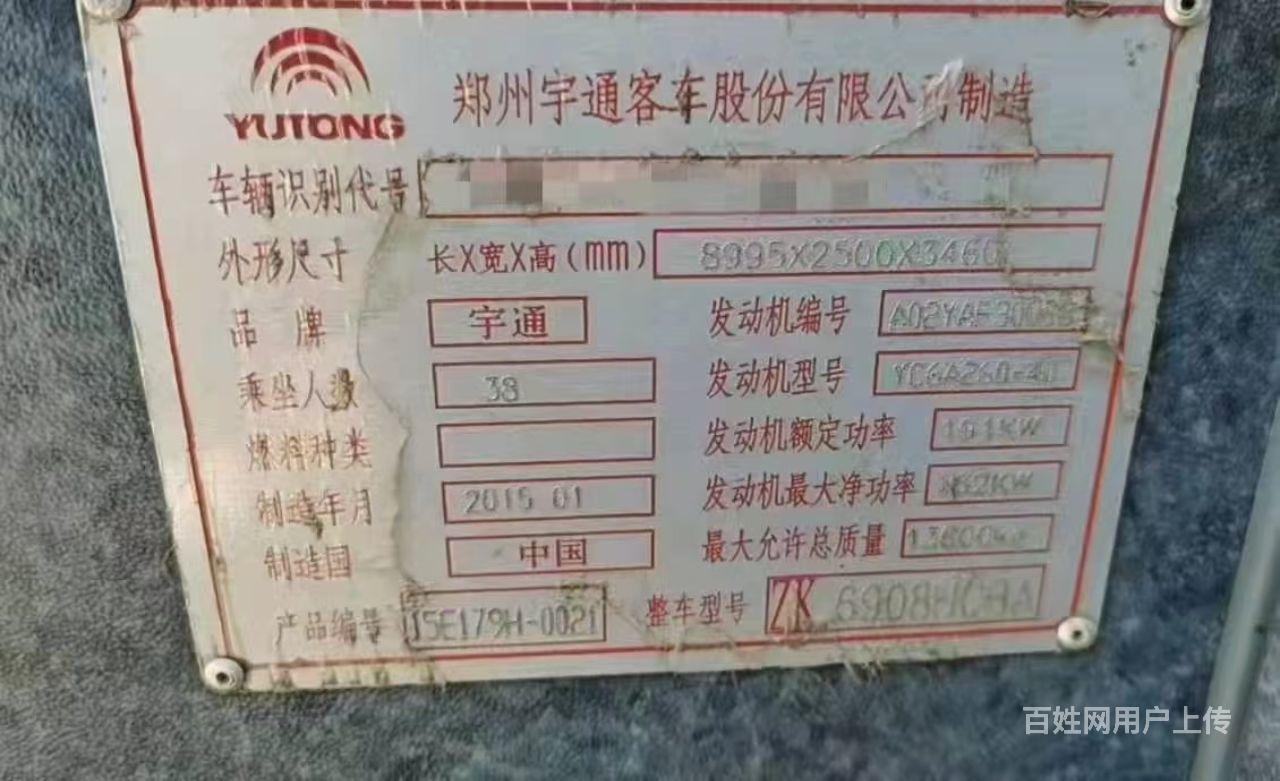 YUTONG
郑州宇通客车股份有限公司制造
车辆识别代号
外形尺寸 长X宽X高(mm) 8995X2500X3460
品牌 宇通 发动机编号
乘坐人数 38 发动机型号 YC6A260-40
燃料种类 发动机额定功率 191KW
制造年月 2015 01 发动机最大净功率
制造国 中国 最大允许总质量
产品编号 J5E179H-0021 整车型号 ZK 6908HCHA
百姓网用户上传